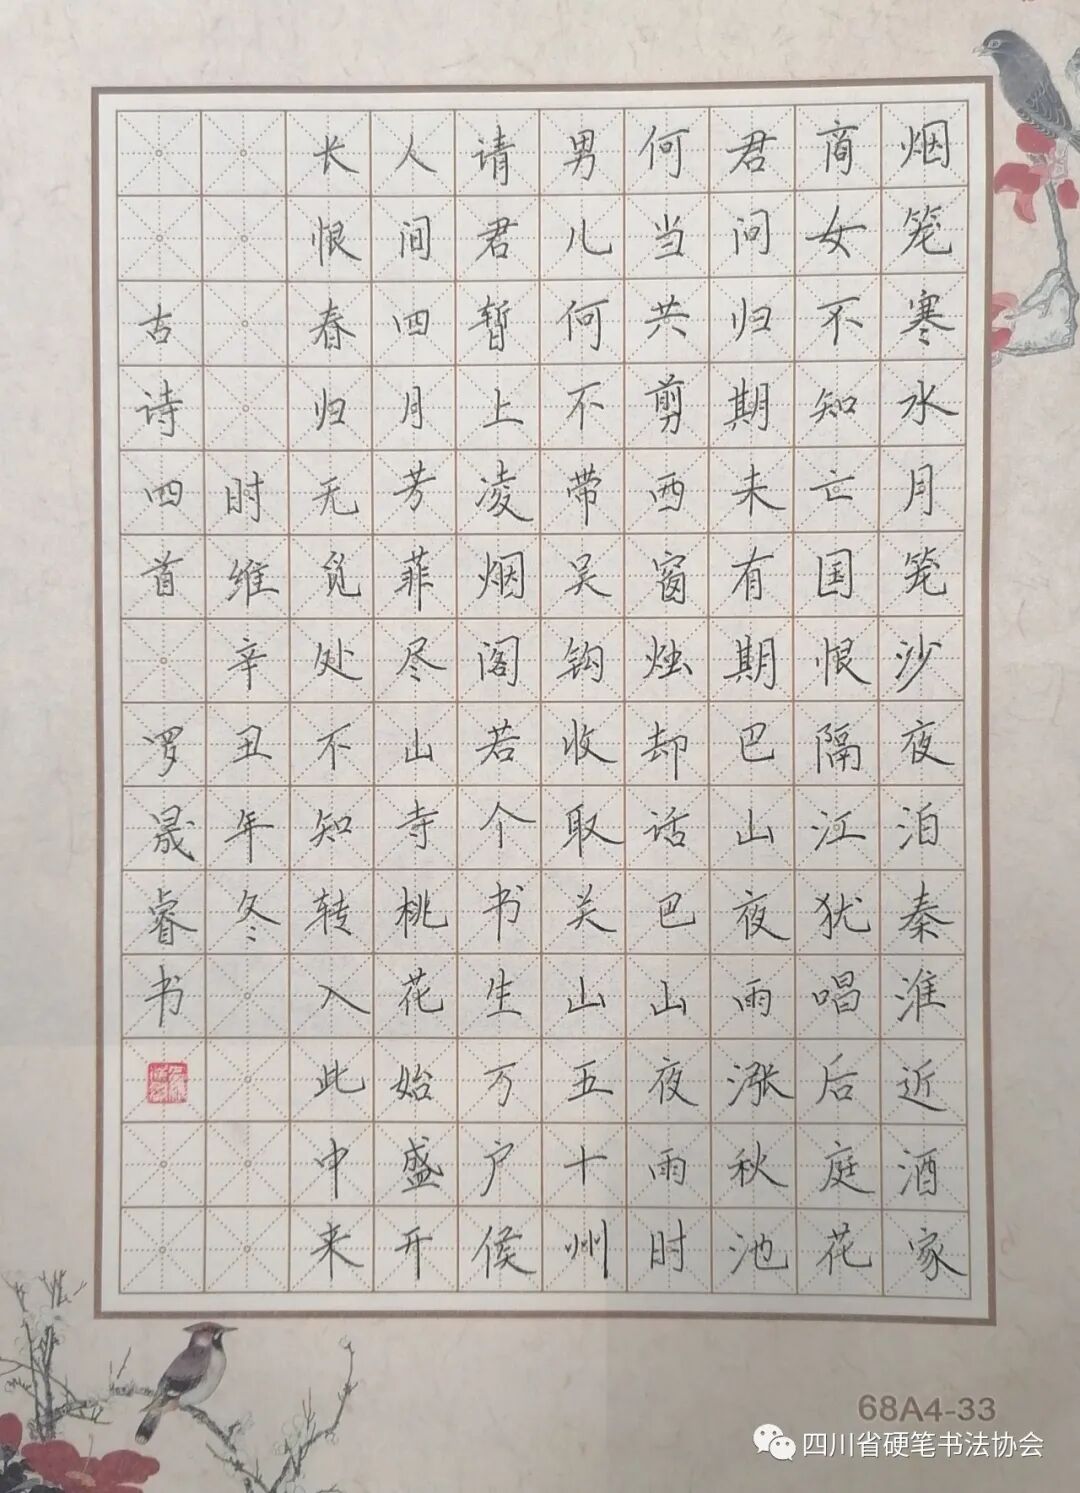 烟笼寒水月笼沙夜泊秦淮近酒家
商女不知亡国恨隔江犹唱后庭花
君问归期未有期巴山夜雨涨秋池
何当共剪西窗烛却话巴山夜雨时
男儿何不带吴钩收取关山五十州
请君暂上凌烟阁若个书生万户侯
人间四月芳菲尽山寺桃花始盛开
长恨春归无觅处不知转入此中来
时维辛丑年冬
古诗四首 罗晟睿书
68A4-33
四川省硬笔书法协会